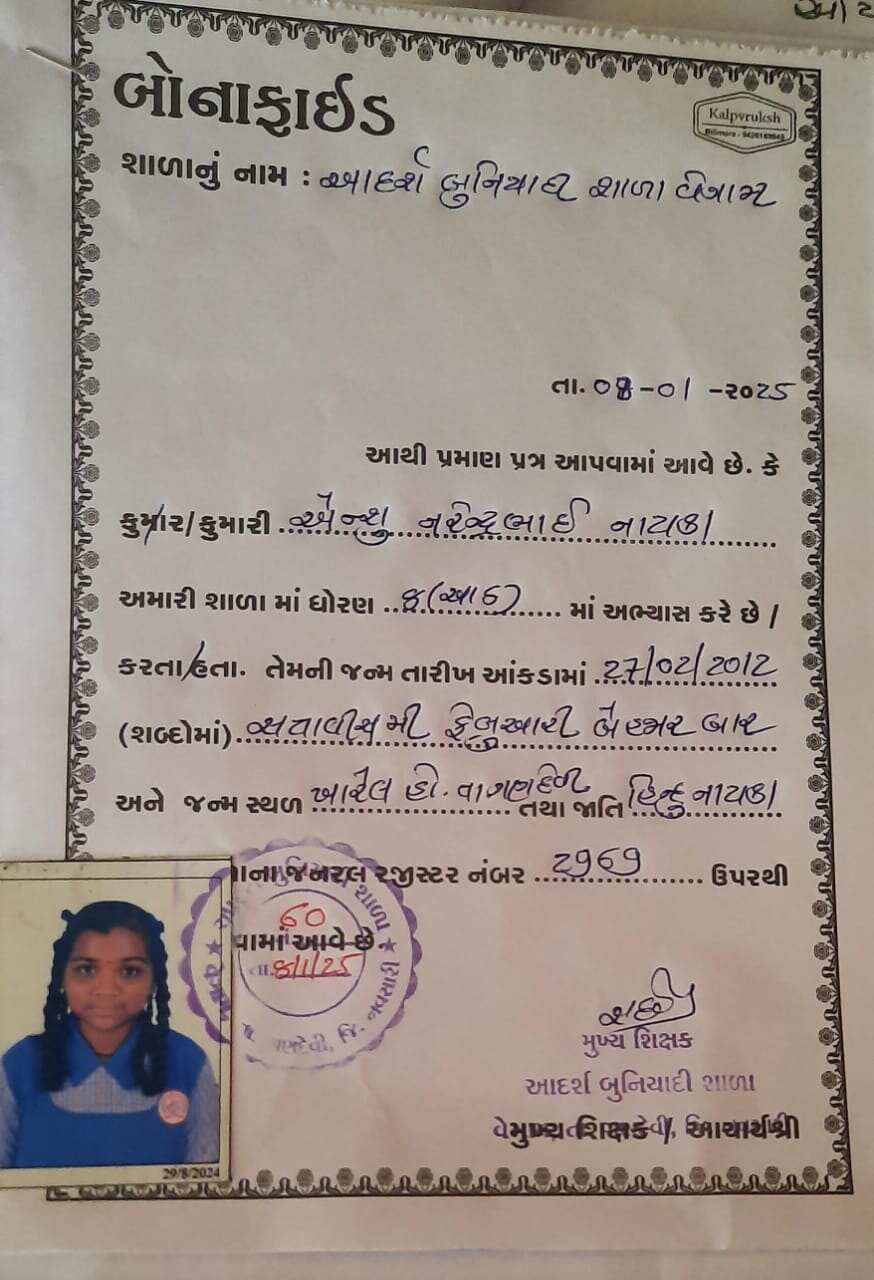 બોનાફાઈડ
Kalpvruksh
શાળાનું નામ : આદર્શ બુનિયાદી શાળા વેગામ
તા. ૦8-૦1 -૨૦25
આથી પ્રમાણ પત્ર આપવામાં આવે છે. કે
કુમાર/કુમારી એન્શુ નરેન્દ્રભાઈ નાયકા
અમારી શાળા માં ધોરણ ૮(આઠ) માં અભ્યાસ કરે છે /
કરતા/હતા. તેમની જન્મ તારીખ આંકડામાં 27/02/2012
(શબ્દોમાં) સત્તાવીસ મી ફેબ્રુઆરી બે હજાર બાર
અને જન્મ સ્થળ ખારેલ હો. તા ગણદેવી તથા જાતિ હિન્દુ નાયકા
ના જનરલ રજીસ્ટર નંબર 2969 ઉપરથી
60
વામાં આવે છે.
તા. ૮/1/25
જિ. નવસારી
મુખ્ય શિક્ષક
આદર્શ બુનિયાદી શાળા
મુખ્ય શિક્ષક / આચાર્યશ્રી
29/8/2024